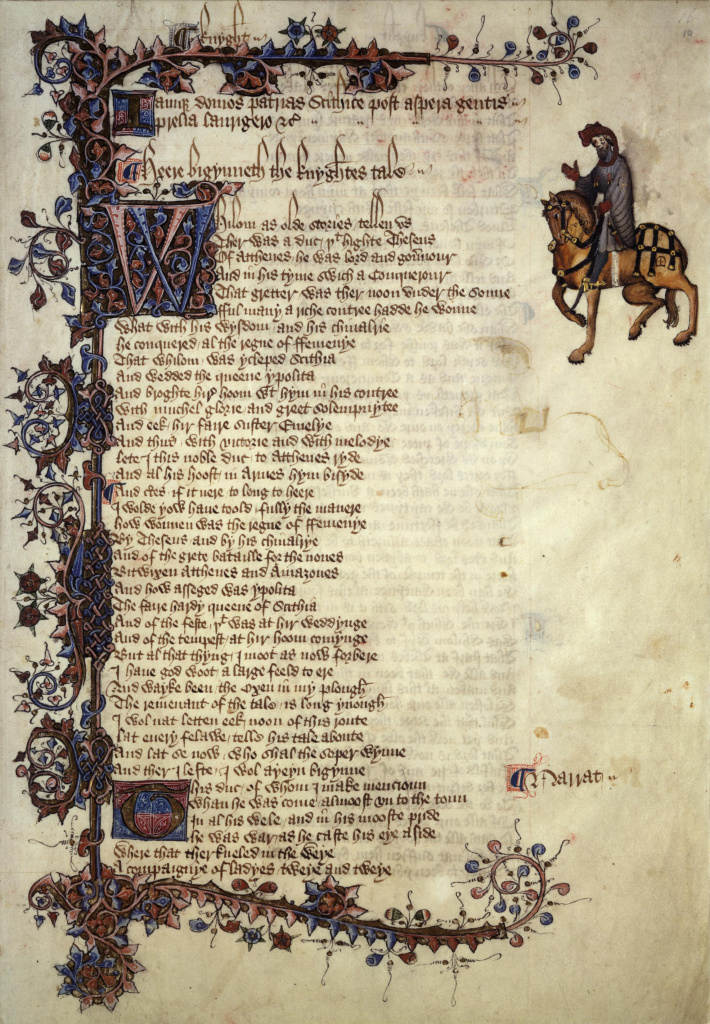 Knyght
Iamque domos patrias Scithice post aspera gentis
prelia laurigero &c
Heere bigynneth the knyghtes tale
Whilom as olde stories tellen vs
Ther was a duc þt highte Theseus
Of Atthenes he was lord and gouernour
And in his tyme swich a Conquerour
That gretter was ther noon vnder the sonne
fful many a riche contree hadde he wonne
What with his wysdom and his chiualrie
He conquered al the regne of ffemenye
That whilom was ycleped Scithia
And wedded the queene ypolita
And broghte hire hoom wt hym in his contree
With muchel glorie and greet solempnytee
And eek hir faire suster Emelye
And thus with victorie and with melodye
Lete I this noble duc to Atthenes ryde
And al his hoost in Armes hym bisyde
And certes if it nere to long to heere
I wolde yow haue toold fully the manere
How wonnen was the regne of ffemenye
By Theseus and by his chiualrye
And of the grete bataille for the nones
Bitwixen Atthenes and Amazones
And how asseged was ypolita
The faire hardy queene of Scithia
And of the feste þt was at hir weddynge
And of the tempest at hir hoom comynge
But al that thyng I moot as now forbere
I haue god woot a large feeld to ere
And wayke been the Oxen in my plough
The remenant of the tale is long ynough
I wol nat letten eek noon of this route
Lat euery felawe telle his tale aboute
And lat se now who shal the soper wynne
And ther I lefte I wol ayeyn bigynne
Narrat
This duc of whom I make mencioun
Whan he was come almoost vn to the toun
In al his wele and in his mooste pride
He was war as he caste his eye aside
Where that ther kneled in the weye
A compaignye of ladyes tweye and tweye